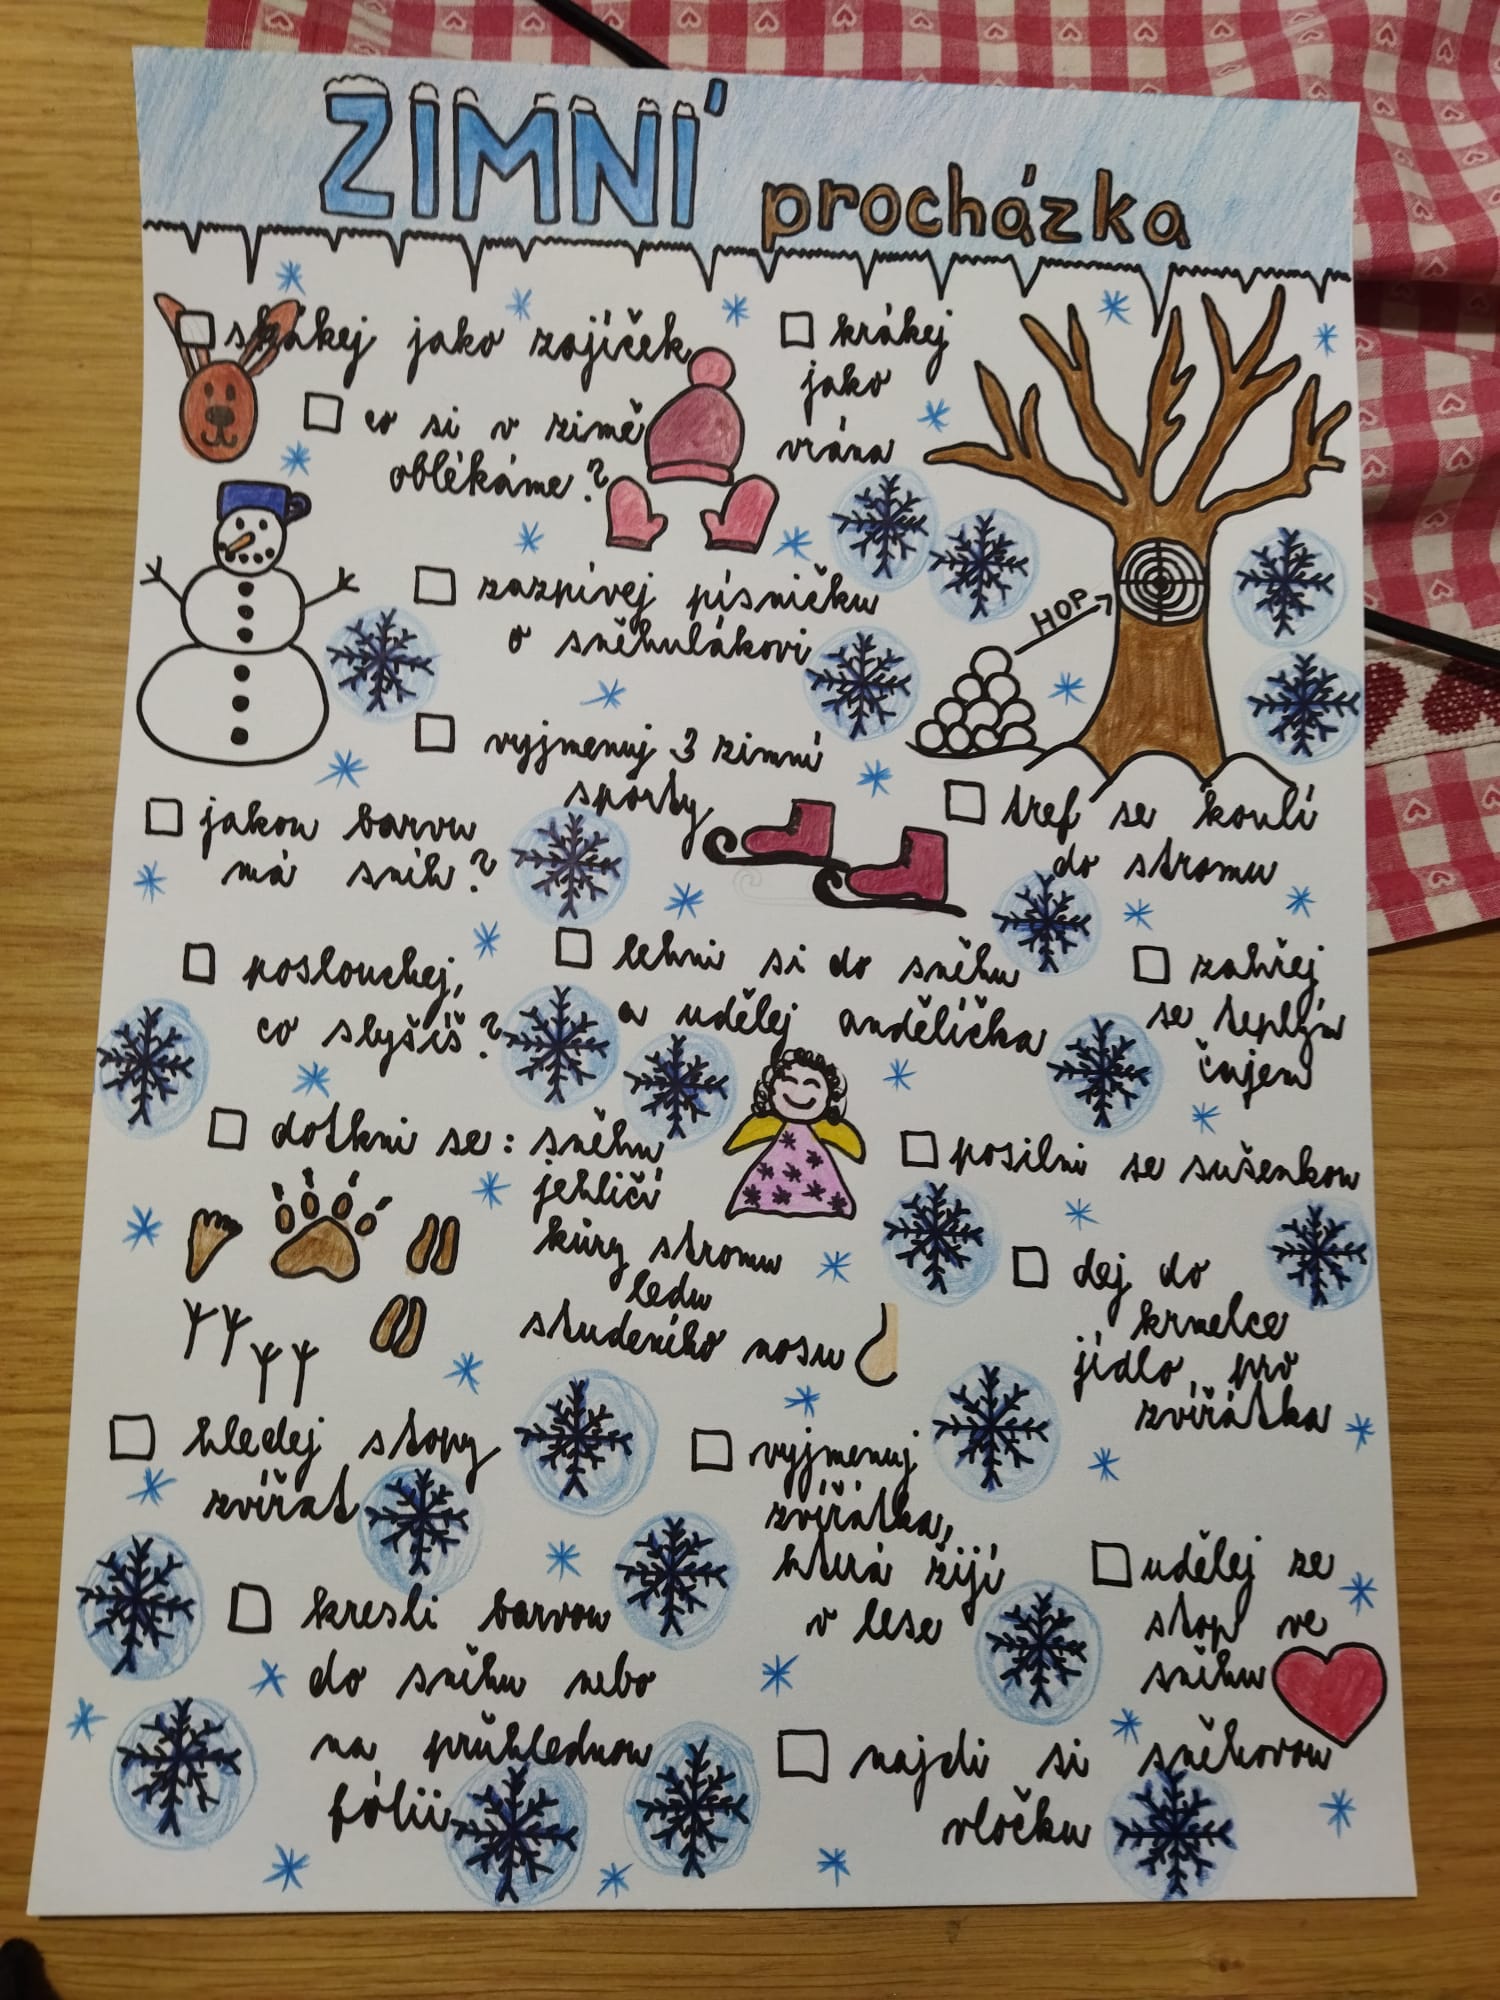 ZIMNÍ procházka
skákej jako zajíček
krákej
jako
vrána
co si v zimě
oblékáme?
zazpívej písničku
o sněhulákovi
HOP
vyjmenuj 3 zimní
sporty
tref se koulí
do stromu
jakou barvu
má sníh?
poslouchej,
co slyšíš?
lehni si do sněhu
a udělej andělíčka
zahřej
se teplým
čajem
dotkni se: sněhu
jehličí
kůry stromu
ledu
studeného nosu
posilni se sušenkou
dej do
krmelce
jídlo pro
zvířátka
hledej stopy
zvířat
vyjmenuj
zvířátka,
která žijí
v lese
udělej ze
stop ve
sněhu
kresli barvou
do sněhu nebo
na průhlednou
fólii
najdi si sněhovou
vločku